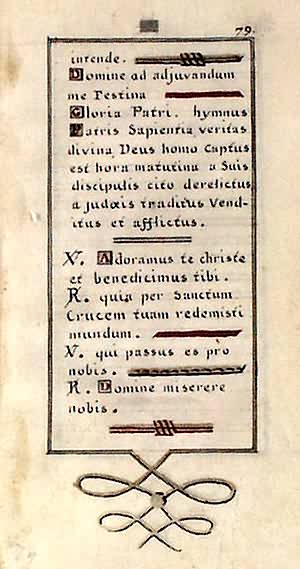 79.
intende.
Domine ad adjuvandum
me Festina
Gloria Patri. hymnus
Patris Sapientia veritas
divina Deus homo Captus
est hora matutina a Suis
discipulis cito derelictus
a judæis traditus Vend-
itus et afflictus.
V. Adoramus te christe
et benedicimus tibi.
R. quia per Sanctum
Crucem tuam redemisti
mundum.
V. qui passus es pro
nobis.
R. Domine miserere
nobis.